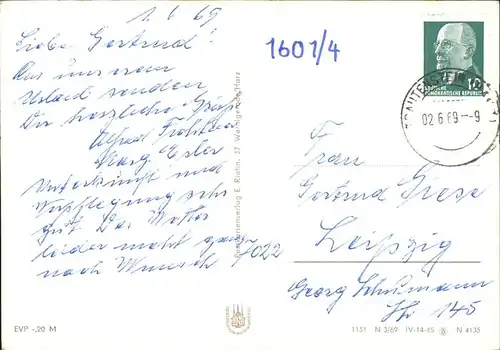 1.6 69
Liebe Gertrud!
Aus unserem
Urlaub senden
Dir herzliche Grüße
Alfred
Unterkunft und
Verpflegung sehr
gut. Das Wetter
leider nicht ganz
nach Wunsch
1601/4
DEUTSCHE
DEMOKRATISCHE REPUBLIK
10
02.6.69-9
Frau
Gertrud Giese
7022 Leipzig
Georg Schumann
Str 145
E. Riehn, 37 Wernigerode/Harz
EVP -,20 M
1151 N 3/69 IV-14-45 N 4135